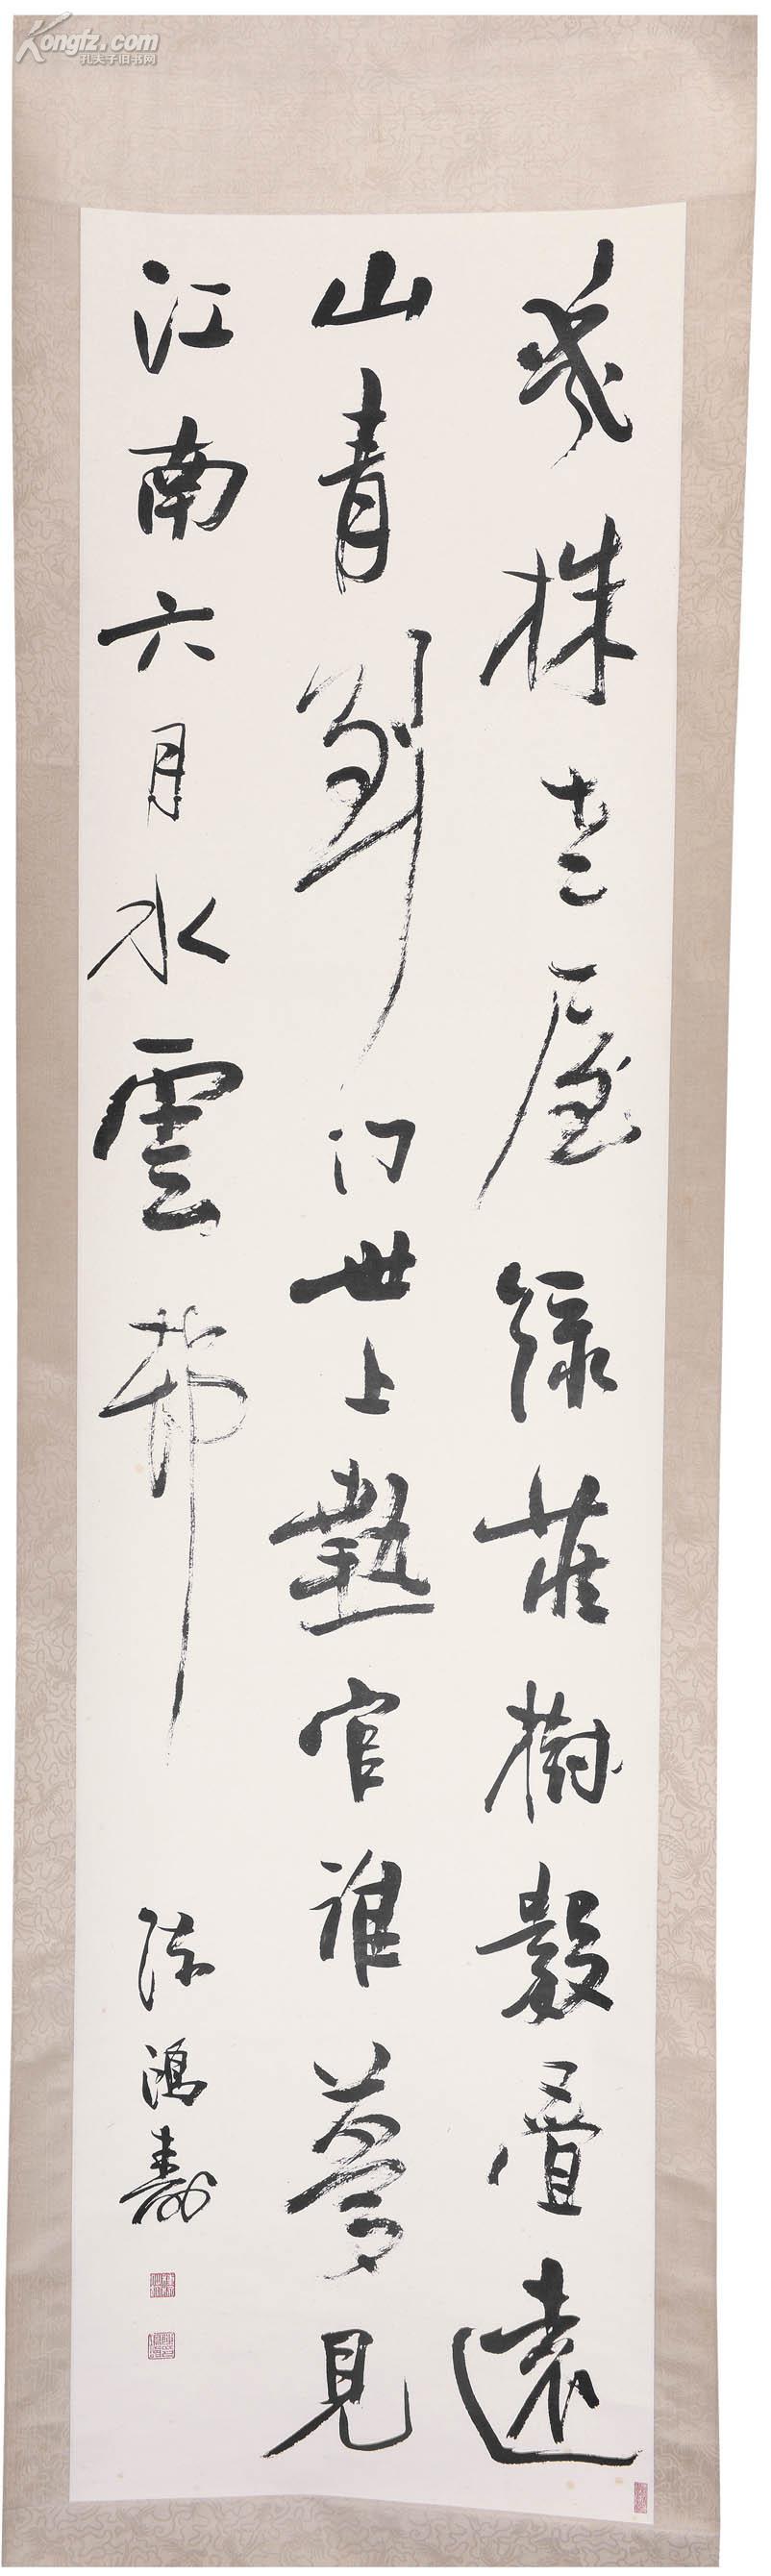 Kongfz.com
孔夫子旧书网
幾株老屋綠莊樹數疊遠
山青對門世上熱官誰夢見
江南六月水雲邨
陳鴻壽